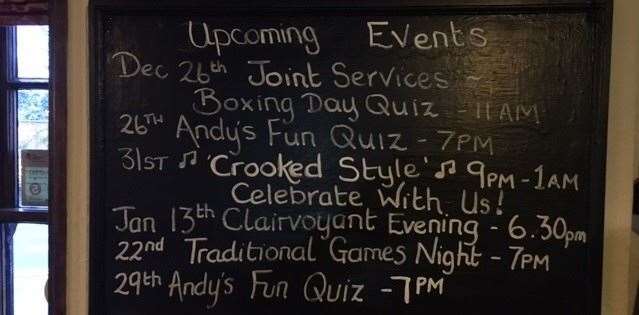 Upcoming Events
Dec 26th Joint Services ~
Boxing Day Quiz 11AM
26TH Andy's Fun Quiz - 7PM
31ST ♫ 'Crooked Style' ♫ 9PM - 1AM
Celebrate With Us!
Jan 13th Clairvoyant Evening - 6.30pm
22nd Traditional Games Night - 7PM
29th Andy's Fun Quiz - 7PM